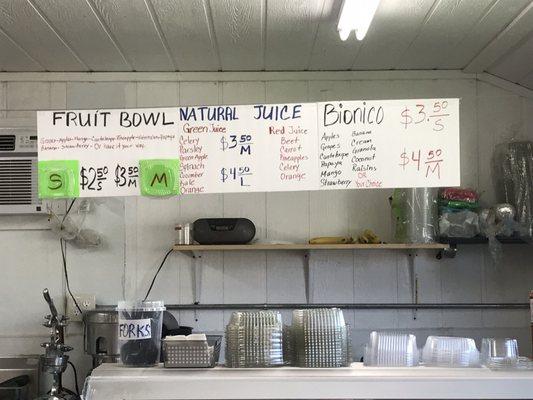 FRUIT BOWL
Grapes-Apples-Mango-Cantaloupe-Pineapple-Watermelon-Papaya
Bananas-Strawberry- Or have it your way.
S
$2.50 S
$3.50 M
M
NATURAL JUICE
Green Juice
Celery
Parsley
Green Apple
Spinach
Cucumber
kale
Orange
$3.50 M
$4.50 L
Red Juice
Beet
Carrot
Pineapples
Celery
Orange
Bionico
Apples
Grapes
Cantaloupe
Papaya
Mango
Strawberry
Banana
Cream
Granola
Coconut
Raisins
OR
Your Choice
$3.50 S
$4.50 M
FORKS